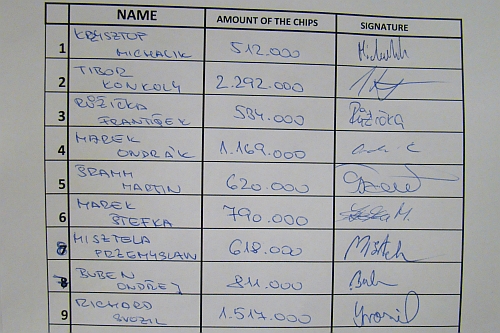 NAME AMOUNT OF THE CHIPS SIGNATURE
1 KRZYSZTOP MICHALIK 512.000
2 TIBOR KONKOLY 2.292.000
3 RŮŽIČKA FRANTIŠEK 534.000 RŮŽIČKA
4 MAREK ONDRÁK 1.169.000
5 BRAMM MARTIN 620.000
6 MAREK ŠTEFKA 790.000 M.
8 MISZTELA PRZEMYSLAW 618.000
7 BUBEN ONDŘEJ 811.000
9 RICHARD SVOZIL 1.517.000